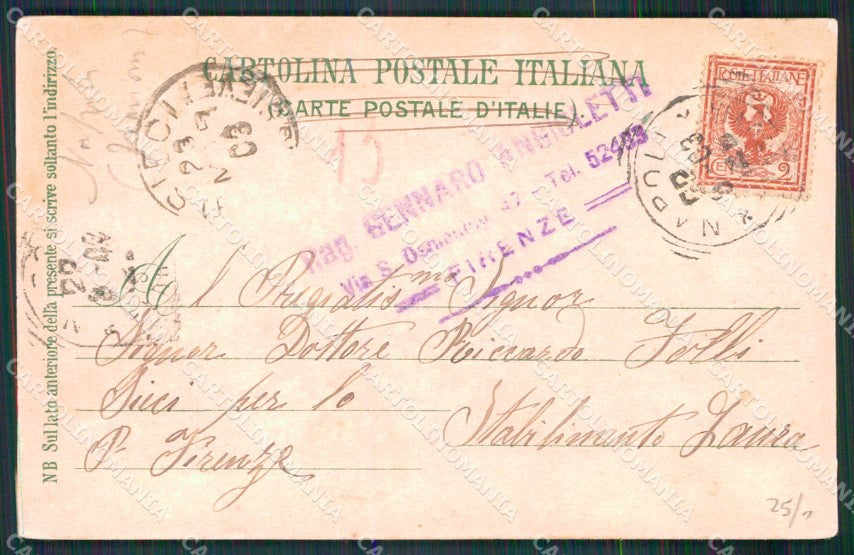 CARTOLINA POSTALE ITALIANA
(CARTE POSTALE D'ITALIE)
NB Sul lato anteriore della presente si scrive soltanto l'indirizzo.
POSTE ITALIANE
CENT. 2
NAPOLI
03
23
03
Rag. GENNARO ANGIOLETTI
Via S. Domenico, 47 - Tel. 52483
FIRENZE
Al Pregiatis.mo Signor
Signor Dottore Riccardo Folli
Sieci per lo Stabilimento Laura
P. Firenze
25/
CARTOLINOMANIA